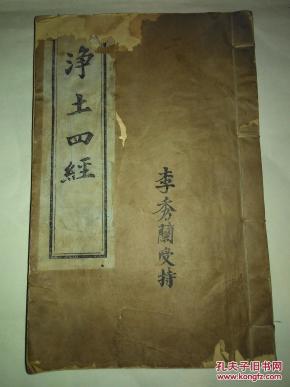 淨土四經
李秀蘭受持
孔夫子旧书网
www.kongfz.com